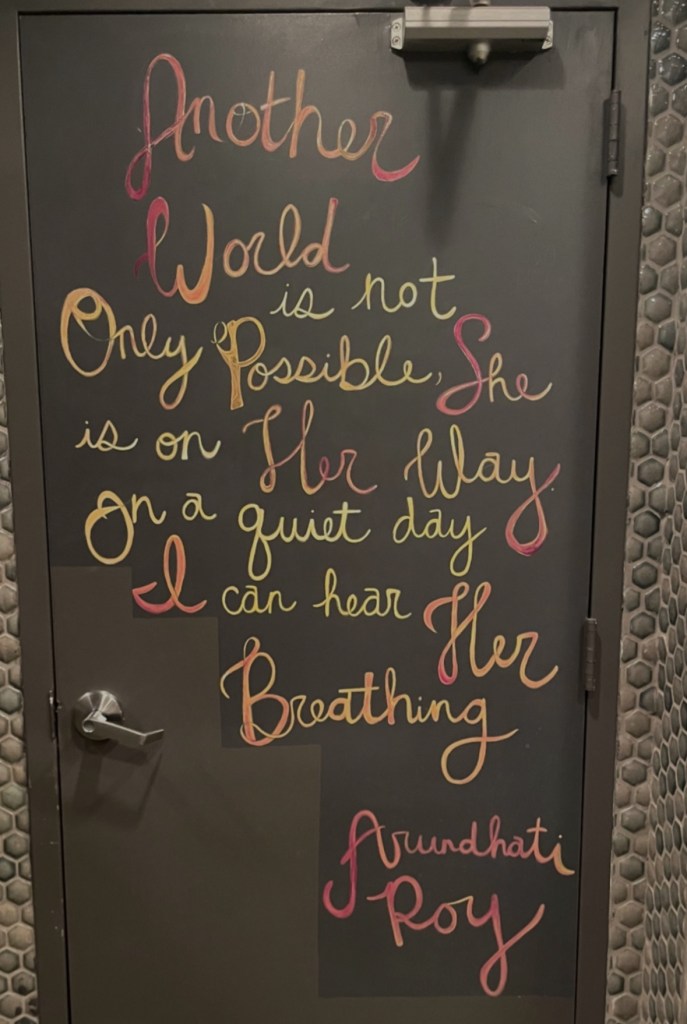 Another
World
is not
Only Possible, She
is on Her Way
On a quiet day
I can hear Her
Breathing
Arundhati
Roy